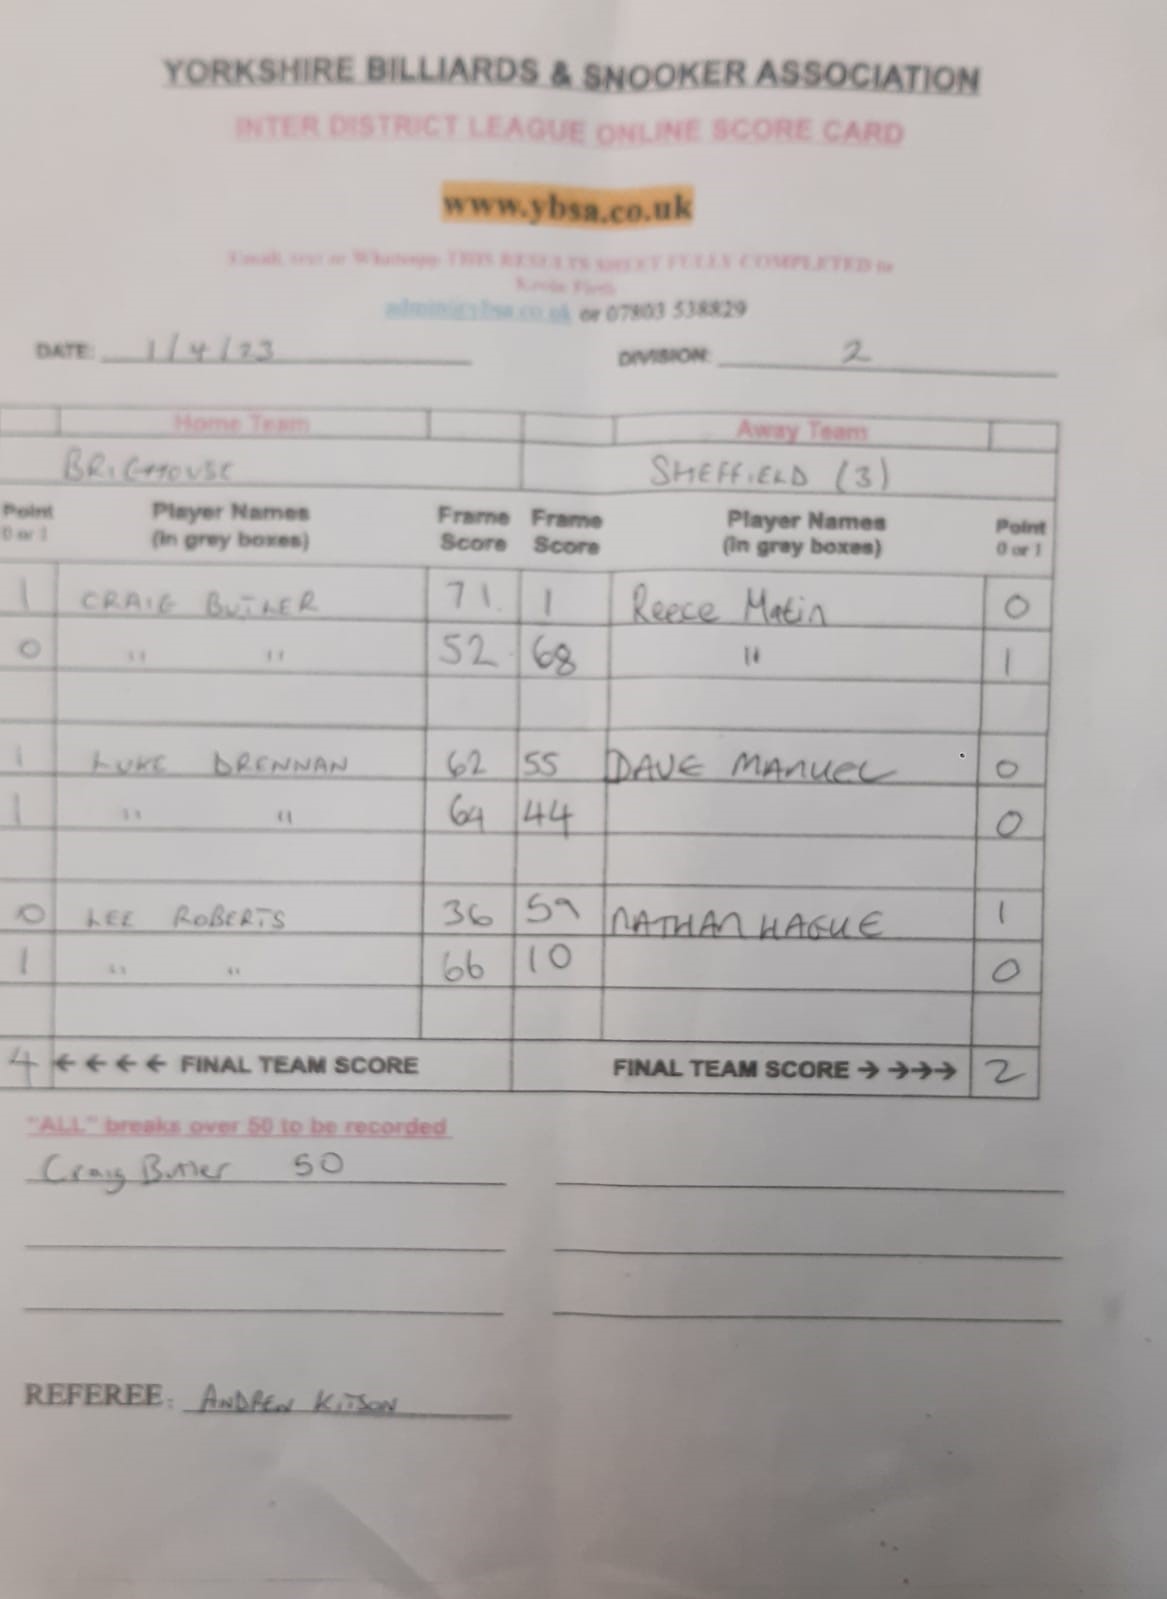 YORKSHIRE BILLIARDS & SNOOKER ASSOCIATION
INTER DISTRICT LEAGUE ONLINE SCORE CARD
www.ybsa.co.uk
Email, text or Whatsapp THIS RESULTS SHEET FULLY COMPLETED to
Kevin Firth
admin@ybsa.co.uk or 07803 538829
DATE: 1/4/23 DIVISION: 2
Home Team Away Team
BRIGHOUSE SHEFFIELD (3)
Point Player Names Frame Frame Player Names Point
0 or 1 (in grey boxes) Score Score (in grey boxes) 0 or 1
1 CRAIG BUTLER 71 1 Reece Matin 0
0 " " 52 68 " 1
1 LUKE DRENNAN 62 55 DAVE MANUEL 0
1 " " 64 44 0
0 LEE ROBERTS 36 59 NATHAN HAGUE 1
1 " " 66 10 0
4 ← ← ← ← FINAL TEAM SCORE FINAL TEAM SCORE → →→→ 2
"ALL" breaks over 50 to be recorded
Craig Butler 50
REFEREE: ANDREW KITSON